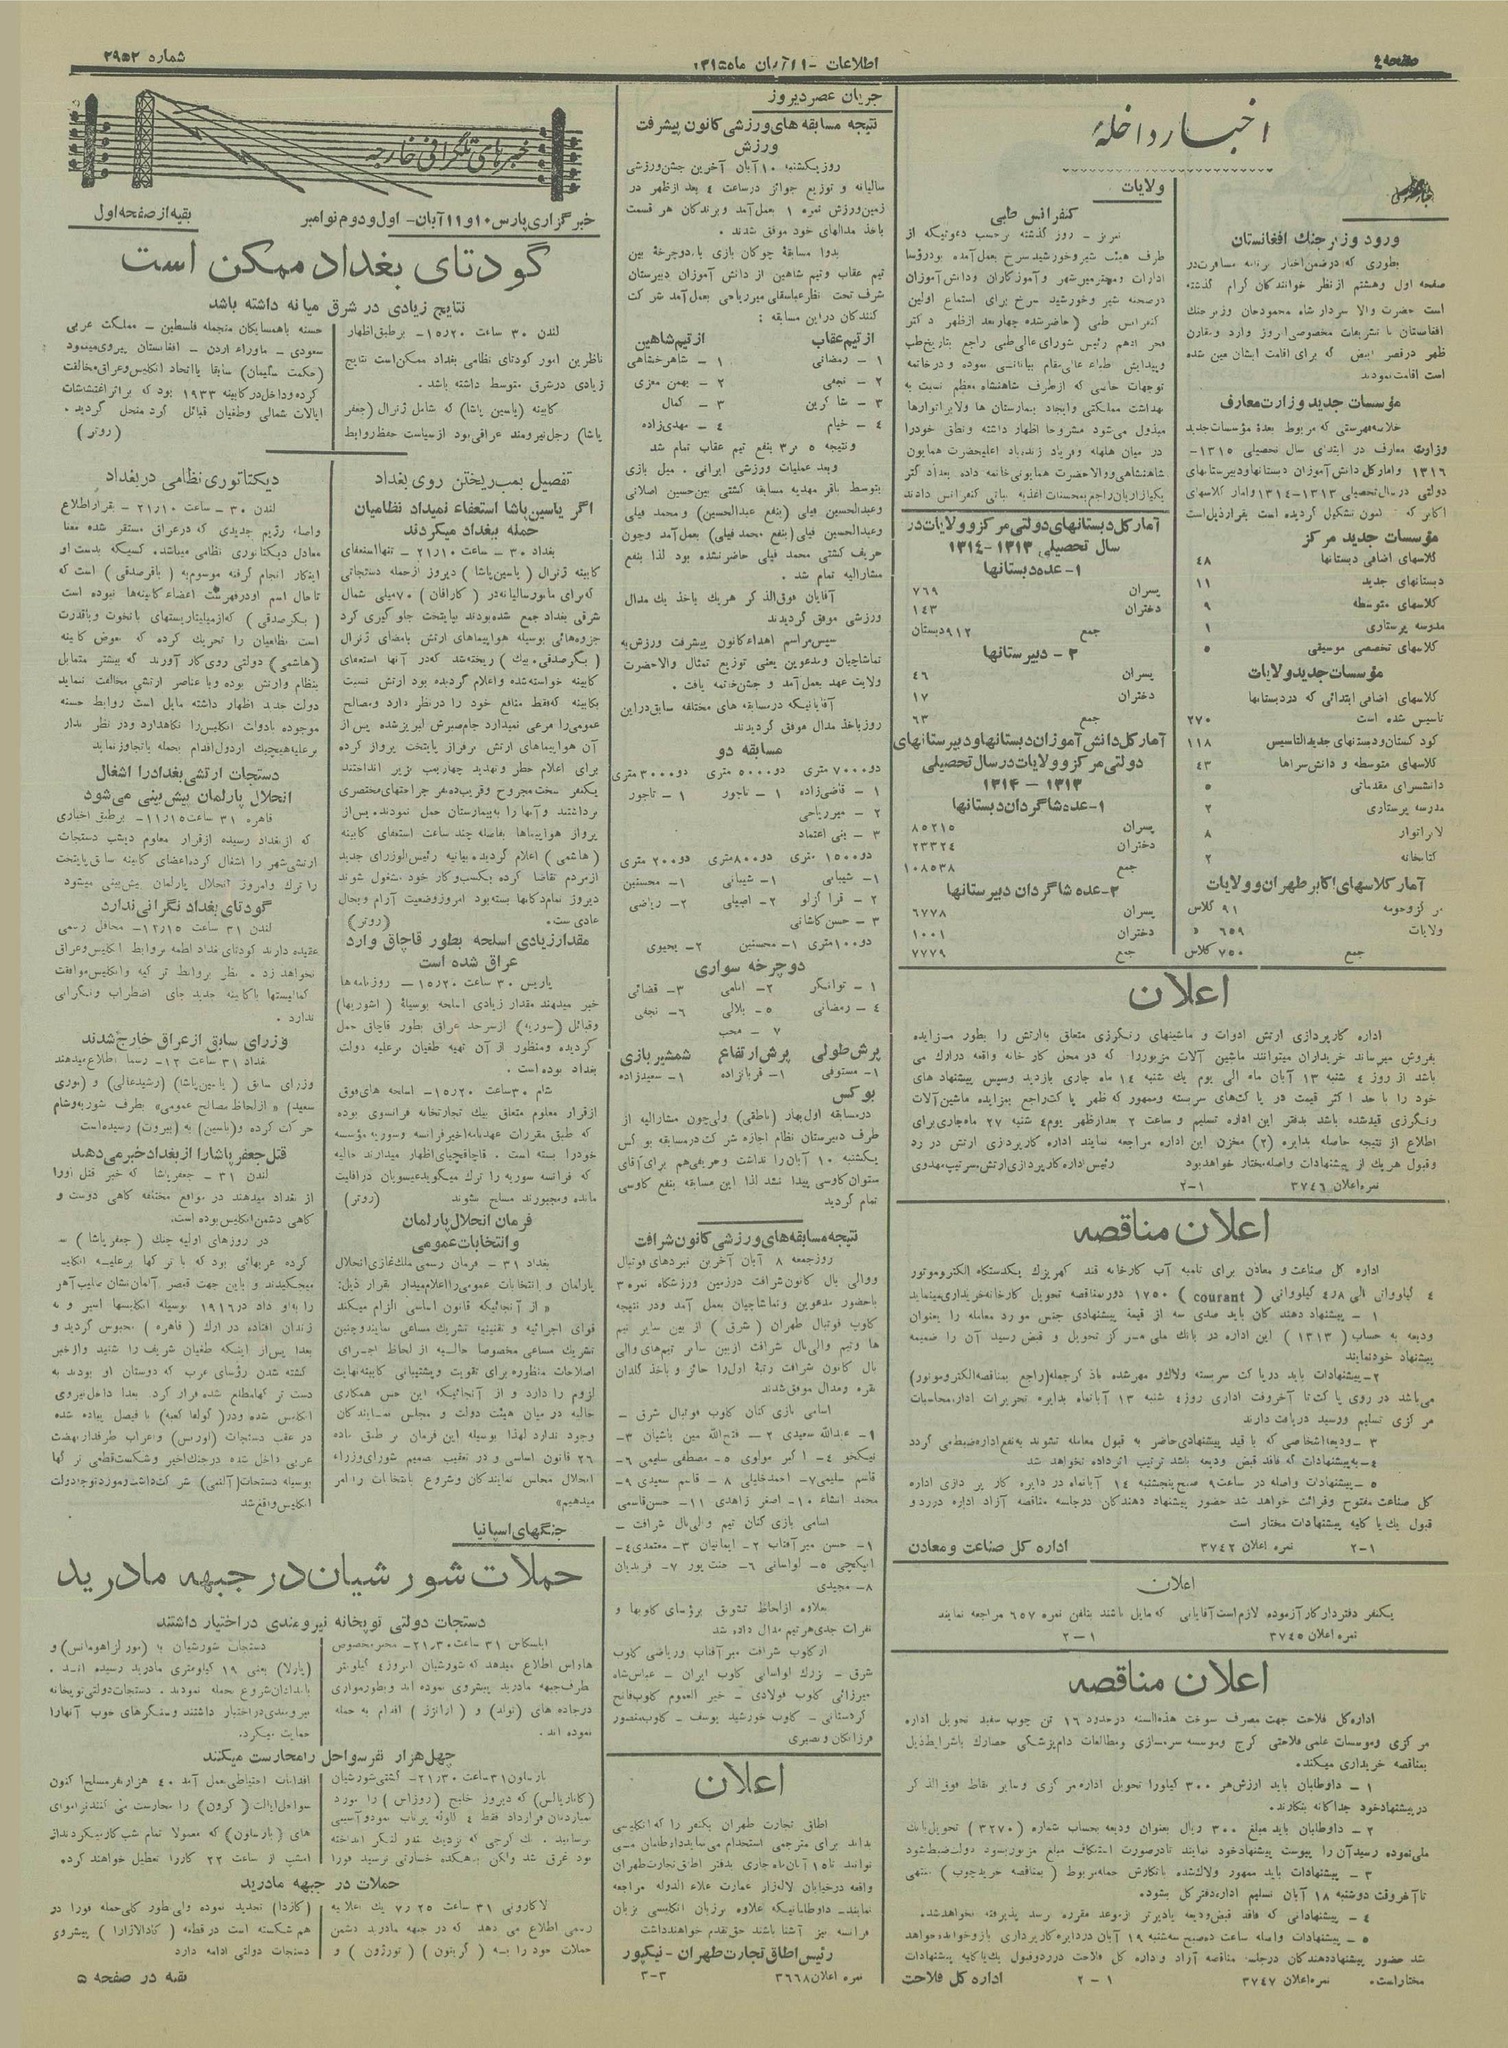 صفحه ۴
اطلاعات - ۱۱ آبان ماه ۱۳۱۵
شماره ۲۹۵۲
اخبار داخله
ورود وزیر جنگ افغانستان
بطوری که در ضمن اخبار برنامه مسافرت در
صفحه اول وهشتم از نظر خوانندگان گرام گذشته
است حضرت والا سردار شاه محمودخان وزیر جنگ
افغانستان با تشریفات مخصوصی امروز وارد ومقارن
ظهر درقصر ابیض که برای اقامت ایشان معین شده
است اقامت نمودند
مؤسسات جدید وزارت معارف
خلاصه فهرستی که مربوط بعدهٔ مؤسسات جدید
وزارت معارف در ابتدای سال تحصیلی ۱۳۱۵-
۱۳۱۶ وآمار کل دانش آموزان دبستانها ودبیرستانهای
دولتی در سال تحصیلی ۱۳۱۳-۱۳۱۴ وآمار کلاسهای
اکابر که تا کنون تشکیل گردیده است بقرار ذیل است
مؤسسات جدید مرکز
کلاسهای اضافی دبستانها ۴۸
دبستانهای جدید ۱۱
کلاسهای متوسطه ۹
مدرسه پرستاری ۱
کلاسهای تخصصی موسیقی ۵
مؤسسات جدید ولایات
کلاسهای اضافی ابتدائی که در دبستانها
تاسیس شده است ۲۷۰
کودکستان ودبستانهای جدید التاسیس ۱۱۸
کلاسهای متوسطه و دانش سراها ۴۳
دانشسرای مقدماتی ۵
مدرسه پرستاری ۲
لابراتوار ۸
کتابخانه ۲
آمار کلاسهای اکابر طهران و ولایات
مرکز وحومه ۹۱ کلاس
ولایات ۶۵۹ د
جمع ۷۵۰ کلاس
ولایات
کنفرانس طبی
تبریز - روز گذشته برحسب دعوتیکه از
طرف هیئت شیر وخورشید سرخ بعمل آمده بود رؤسا
ادارات ومحترمین شهر وآموزگاران ودانش آموزان
درصحنه شیر وخورشید سرخ برای استماع اولین
کنفرانس طبی (حاضر شده چهار بعد از ظهر دکتر
توجهات خاصی که از طرف شاهنشاه معظم نسبت به
بهداشت مملکتی وایجاد بیمارستان ها ولابراتوارها
مبذول می‌شود مشروحا اظهار داشته ونطق خودرا
در میان هلهله وفریاد زنده باد اعلیحضرت همایون
شاهنشاهی ووالاحضرت همایونی خاتمه داده بعداً دکتر
آمار کل دبستانهای دولتی مرکز و ولایات در
سال تحصیلی ۱۳۱۳-۱۳۱۴
۱-عده دبستانها
پسران ۷۶۹
دختران ۱۴۳
جمع ۹۱۲ دبستان
۲- دبیرستانها
پسران ۴۶
دختران ۱۷
جمع ۶۳
آمار کل دانش آموزان دبستانها و دبیرستانهای
دولتی مرکز و ولایات در سال تحصیلی
۱۳۱۳ - ۱۳۱۴
۱-عده شاگردان دبستانها
پسران ۸۵۲۱۵
دختران ۲۳۳۲۴
جمع ۱۰۸۵۳۸
۲-عده شاگردان دبیرستانها
پسران ۶۷۷۸
دختران ۱۰۰۱
جمع ۷۷۷۹
اعلان
اداره کارپردازی ارتش ادوات و ماشینهای رنگرزی متعلق به ارتش را بطور مزایده
بفروش میرساند خریداران میتوانند ماشین آلات مزبور را که در محل کارخانه واقعه در ارک می
باشد از روز ۴ شنبه ۱۳ آبان ماه الی یوم یك شنبه ۱۴ ماه جاری بازدید وسپس پیشنهاد های
خود را با حد اکثر قیمت در پاکت‌های سربسته وممهور که ظهر پاکت راجع بمزایده ماشین آلات
رنگرزی قید شده باشد بدفتر این اداره تسلیم و ساعت ۲ بعدازظهر یوم ۴ شنبه ۲۷ ماه جاری برای
اطلاع از نتیجه حاصله بدایره (۲) مخزن این اداره مراجعه نمایند اداره کارپردازی ارتش در رد
وقبول هر یک از پیشنهادات واصله مختار خواهد بود رئیس اداره کارپردازی ارتش. سرتیپ مهدوی
نمره اعلان ۳۷۴۶ ۱-۲
اعلان مناقصه
اداره کل صناعت و معادن برای تامیه آب کارخانه قند کهریزک یکدستگاه الکتروموتور
۴ کیلوواتی الی ۴٫۸ کیلوواتی (courant) ۱۷۵۰ دور بمناقصه تحویل کارخانه خریداری مینماید
۱ - پیشنهاد دهندگان باید صدی سه از قیمة پیشنهادی جنس مورد معامله را بعنوان
ودیعه به حساب (۱۳۱۳) این اداره در بانك ملی مرکز تحویل و قبض رسید آن را ضمیمه
پیشنهاد خود نمایند
۲-پیشنهادات باید در پاکت سربسته ولاك و مهر شده باذکر جمله(راجع بمناقصه الکتروموتور)
می‌باشد در روی پاکت تا آخروقت اداری روز ۴ شنبه ۱۳ آبانماه بدایره تحریرات اداره محاسبات
مرکزی تسلیم ورسید دریافت دارند
۳ -ودیعه اشخاصی که با قید پیشنهادی حاضر به قبول معامله نشوند به نفع اداره ضبط می گردد
۴-به پیشنهادات که فاقد قبض ودیعه باشد ترتیب اثر داده نخواهد شد
۵ -پیشنهادات واصله در ساعت ۹ صبح پنجشنبه ۱۴ آبانماه در دایره کار پردازی اداره
کل صناعت مفتوح وقرائت خواهد شد حضور پیشنهاد دهندگان درجلسه مناقصه آزاد اداره دررد و
قبول یك یا کلیه پیشنهادات مختار است
۱-۲ نمره اعلان ۳۷۴۲ اداره کل صناعت و معادن
اعلان
یکنفر دفتردار کار آزموده لازم است آقایانی که مایل باشند بتلفن نمره ۶۵۷ مراجعه نمایند
نمره اعلان ۳۷۴۵ ۱-۲
اعلان مناقصه
اداره کل فلاحت جهت مصرف سوخت هذه السنه درحدود ۱۶ تن چوب سفید تحویل اداره
مرکزی وموسسات علمی فلاحتی کرج وموسسه سرم سازی ومطالعات دام پزشکی حصارك باشرایط ذیل
بمناقصه خریداری میکند.
۱ - داوطلبان باید ارزش هر ۳۰۰ کیلو را تحویل اداره مرکزی وسایر نقاط فوق الذکر
در پیشنهاد خود جداگانه بنگارند.
۲ - داوطلبان باید مبلغ ۳۰۰ ریال بعنوان ودیعه بحساب شماره (۳۲۷۰) تحویل بانك
ملی نموده رسید آن را پیوست پیشنهاد خود نمایند تا درصورت استنکاف مبلغ مزبور بسود دولت ضبط شود
۳ - پیشنهادات باید ممهور ولاك شده با نگارش جمله مربوط (بمناقصه خرید چوب) منتهی
تا آخر وقت دوشنبه ۱۸ آبان تسلیم اداره دفتر کل بشود.
۴ - پیشنهاداتی که فاقد قبض ودیعه یا دیرتر از موعد مقرره برسد پذیرفته نخواهد شد.
۵ - پیشنهادات واصله ساعت ده صبح سه‌شنبه ۱۹ آبان در دایره کارپردازی باز وخوانده خواهد
شد حضور پیشنهاد دهندگان درجلسه مناقصه آزاد و اداره کل فلاحت دررد وقبول یك یا کلیه پیشنهادات
مختار است. نمره اعلان ۳۷۴۷ ۱-۲ اداره کل فلاحت
جریان عصر دیروز
نتیجه مسابقه های ورزشی کانون پیشرفت
ورزش
روز یکشنبه ۱۰ آبان آخرین جشن ورزشی
سالیانه و توزیع جوائز در ساعت ۴ بعد از ظهر در
زمین ورزش نمره ۱ بعمل آمد و برندگان هر قسمت
باخذ مدالهای خود موفق شدند.
بدوا مسابقهٔ چوگان بازی با دوچرخهٔ بین
تیم عقاب وتیم شاهین از دانش آموزان دبیرستان
شرف تحت نظر عباسقلی میرریاحی بعمل آمد شرکت
کنندگان در این مسابقه :
از تیم عقاب از تیم شاهین
۱ - رمضانی ۱ - شاهرخشاهی
۲ - نجفی ۲ - بهمن معزی
۳ - شاکرین ۳ - کمال
۴ - خیام ۴ - مهدی زاده
ونتیجه ۵ بر ۳ بنفع تیم عقاب تمام شد
وبعد عملیات ورزشی ایرانی . میل بازی
بتوسط باقر مهدیه مسابقهٔ کشتی بین حسین اصلانی
وعبدالحسین فیلی (بنفع عبدالحسین) و محمد فیلی
وعبدالحسین فیلی (بنفع محمد فیلی) بعمل آمد وچون
حریف کشتی محمد فیلی حاضر نشده بود لذا بنفع
مشارالیه تمام شد .
آقایان فوق الذکر هر یك باخذ یك مدال
ورزشی موفق گردیدند
سپس مراسم اهداء کانون پیشرفت ورزش به
تماشاچیان ومدعوین یعنی توزیع تمثال والاحضرت
ولایت عهد بعمل آمد و جشن خاتمه یافت .
آقایانیکه درمسابقه های مختلفه سابق دراین
روز باخذ مدال موفق گردیدند
مسابقه دو
دو ۷۰۰۰ متری دو ۵۰۰۰ متری دو ۳۰۰۰ متری
۱ - قاضی زاده ۱ - تاجور ۱ - تاجور
۲ - میر ریاحی
۳ - بنی اعتماد
دو ۱۵۰۰ متری دو ۸۰۰ متری دو ۲۰۰ متری
۱- شیبانی ۱- شیبانی ۱- محسنین
۲ - قرا گزلو ۲ - اصیلی ۲- ریاضی
۳ - حسن کاشانی
دو ۱۰۰ متری ۱- محسنین ۲- یحیوی
دوچرخه سواری
۱ - توانگر ۲- امامی ۳- قضائی
۴ - رمضانی ۵- بلالی ۶- نجفی
۷ - محب
پرش طولی پرش ارتفاع شمشیر بازی
۱- مستوفی ۱- قربانزاده ۱- سعیدزاده
بوکس
درمسابقه اول بهار (ناطقی) ولی چون مشارالیه از
طرف دبیرستان نظام اجازه شرکت درمسابقه بوکس
یکشنبه ۱۰ آبان را نداشت وحریفی هم برای آقای
ستوان کاوسی پیدا نشد لذا این مسابقه بنفع کاوسی
تمام گردید
نتیجه مسابقه های ورزشی کانون شرافت
روز جمعه ۸ آبان آخرین نبردهای فوتبال
ووالی بال کانون شرافت در زمین ورزشگاه نمره ۳
باحضور مدعوین وتماشاچیان بعمل آمد ودر نتیجه
کاوپ فوتبال طهران (شرق) از بین سایر تیم
ها وتیم والی بال شرافت از بین سایر تیم‌های والی
بال کانون شرافت رتبهٔ اول را حائز و باخذ گلدان
نقره ومدال موفق شدند
اسامی بازی کنان کلوب فوتبال شرق -
۱- عبدالله سعیدی ۲ - فتح الله مین باشیان ۳-
نیکخو ۴- اکبر مولوی ۵- مصطفی سلیمی ۶-
قاسم سلیمی ۷- احمد خلیلی ۸ - قاسم سعیدی ۹-
محمد انشاء ۱۰- اصغر زاهدی ۱۱- حسن قاسمی
اسامی بازی کنان تیم والی بال شرافت -
۱- حسن میر آفتاب ۲- ایمانیان ۳- معتمدی ۴-
ایگچی ۵- لواسانی ۶- جنت پور ۷- فریدیان
۸- مجیدی
علاوه از لحاظ تشویق برؤسای کلوبها و
نفرات جدی هر تیم مدال داده شد
از کلوپ شرافت میر آفتاب وریاضی کلوب
شرق - بزرك لواسانی کلوب ایران - عباس شاه
میرزائی کلوب فولادی - خیر العموم کلوب فاتح
کردستانی - کلوب خورشید یوسف - کلوب منصور
فرزانگان و نصیری
اعلان
اطاق تجارت طهران یکنفر را که انگلیسی
بداند برای مترجمی استخدام می‌نماید داوطلبان می
توانند تا ۱۵ آبان ماه جاری بدفتر اطاق تجارت طهران
واقعه درخیابان لاله زار عمارت علاء الدوله مراجعه
نمایند - داوطلبانیکه علاوه بر زبان انگلیسی بزبان
فرانسه نیز آشنا باشند حق تقدم خواهند داشت
رئیس اطاق تجارت طهران - نیکپور
نمره اعلان ۳۶۶۸ ۳-۳
خبرهای تلگرافی خارجه
خبرگزاری پارس ۱۰ و ۱۱ آبان - اول و دوم نوامبر
بقیه از صفحه اول
کودتای بغداد ممکن است
نتایج زیادی در شرق میانه داشته باشد
لندن ۳۰ ساعت ۱۵٫۲۰ - بر طبق اظهار
ناظرین امور کودتای نظامی بغداد ممکن است نتایج
زیادی در شرق متوسط داشته باشد .
کابینه (یاسین پاشا) که شامل ژنرال (جعفر
پاشا) رجل نیرومند عراقی بود از سیاست حفظ روابط
حسنه با همسایگان منجمله فلسطین - مملکت عربی
سعودی - ماوراء اردن - افغانستان پیروی مینمود
(حکمت سلیمان) سابقا با اتحاد انگلیس وعراق مخالفت
کرده و داخل در کابینه ۱۹۳۳ بود که بر اثر اغتشاشات
ایالات شمالی وطغیان قبائل کرد منحل گردید .
(روتر)
تفصیل بمب ریختن روی بغداد
اگر یاسین پاشا استعفاء نمیداد نظامیان
حمله ببغداد میکردند
بغداد ۳۰ - ساعت ۲۱٫۱۰ - تنها استعفای
کابینه ژنرال (یاسین پاشا) دیروز از حمله دستجاتی
که برای مانور سالیانه در (کارافان) ۷۰ میلی شمال
شرقی بغداد جمع شده بودند بپایتخت جلو گیری کرد
جزوه‌هائی بوسیله هواپیماهای ارتش بامضای ژنرال
(بکر صدقی بیك) ریخته شد که در آنها استعفای
کابینه خواسته شده واعلام گردیده بود ارتش نسبت
بکابینه که فقط منافع خود را در نظر دارد ومصالح
عمومی را مرعی نمیدارد جام صبرش لبریز شده پس از
آن هواپیماهای ارتش برفراز پایتخت پرواز کرده
برای اعلام خطر وتهدید چهار بمب بزیر انداختند
یکنفر سخت مجروح وقریب ده نفر جراحتهای مختصری
برداشتند وآنها را به بیمارستان حمل نمودند. پس از
پرواز هواپیماها بفاصله چند ساعت استعفای کابینه
(هاشمی) اعلام گردید. بیانیه رئیس الوزرای جدید
از مردم تقاضا کرده بکسب وکار خود مشغول شوند
دیروز تمام دکانها بسته بود امروز وضعیت آرام وبحال
عادی است . (روتر)
مقدار زیادی اسلحه بطور قاچاق وارد
عراق شده است
پاریس ۳۰ ساعت ۱۵٫۲۰ - روزنامه ها
خبر میدهند مقدار زیادی اسلحه بوسیلهٔ (آشوریها)
وقبائل (سوریه) از سرحد عراق بطور قاچاق حمل
گردیده ومنظور از آن تهیه طغیان بر علیه دولت
بغداد بوده است .
شام ۳۰ ساعت ۱۵٫۲۰ - اسلحه های فوق
از قرار معلوم متعلق بیك تجارتخانه فرانسوی بوده
که طبق مقررات عهدنامه اخیر فرانسه وسوریه مؤسسه
خودرا بسته است . قاچاقچیان اظهار میدارند حالیه
که فرانسه سوریه را ترك میگوید عیسویان در اقلیت
مانده ومجبورند مسلح شوند (روتر)
فرمان انحلال پارلمان
وانتخابات عمومی
بغداد ۳۱ - فرمان رسمی ملك غازی انحلال
پارلمان و انتخابات عمومی را اعلام میدارد بقرار ذیل:
« از آنجائیکه قانون اساسی الزام میکند
قوای اجرائیه و تقنینیه تشریك مساعی نمایند وچنین
تشریك مساعی مخصوصا حالیه از لحاظ اجرای
اصلاحات منظوره برای تقویت و پشتیبانی کابینه نهایت
لزوم را دارد و از آنجائیکه این حس همکاری
حالیه در میان هیئت دولت و مجلس نمایندگان
وجود ندارد لهذا بوسیله این فرمان بر طبق ماده
۲۶ قانون اساسی و در تعقیب تصمیم شورای وزراء
انحلال مجلس نمایندگان وشروع بانتخابات را امر
میدهیم»
دیکتاتوری نظامی در بغداد
لندن ۳۰ - ساعت ۲۱٫۱۰ - بقرار اطلاع
واصله رژیم جدیدی که در عراق مستقر شده معنا
معادل دیکتاتوری نظامی میباشد. کسیکه بدست او
ابتکار انجام گرفته موسوم به (باقر صدقی) است که
تا حال اسم او در فهرست اعضاء کابینه‌ها نبوده است
(بکر صدقی) که از میلیتاریستهای بانخوت وباقدرت
است نظامیان را تحریك کرده که بعوض کابینه
(هاشمی) دولتی روی کار آورند که بیشتر متمایل
بنظام وارتش بوده وبا عناصر ارتشی مخالفت ننماید
دولت جدید اظهار داشته مایل است روابط حسنه
موجوده با دولت انگلیس را نگاهدارد ودر نظر ندارد
بر علیه هیچیك از دول اقدام بحمله یا تجاوز نماید
دستجات ارتشی بغداد را اشغال
انحلال پارلمان پیش بینی می‌شود
قاهره ۳۱ ساعت ۱۱٫۱۵ - بر طبق اخباری
که از بغداد رسیده از قرار معلوم دیشب دستجات
ارتشی شهر را اشغال کرده اعضای کابینه سابق پایتخت
را ترك وامروز انحلال پارلمان پیش بینی میشود
کودتای بغداد نگرانی ندارد
لندن ۳۱ ساعت ۱۲٫۱۵ - محافل رسمی
عقیده دارند کودتای بغداد لطمه بروابط انگلیس وعراق
نخواهد زد . نظر بروابط ترکیه وانگلیس موافقت
کمالیستها با کابینه جدید جای اضطراب ونگرانی
ندارد .
وزرای سابق از عراق خارج شدند
بغداد ۳۱ ساعت ۱۲ - رسما اطلاع میدهند
وزرای سابق (یاسین پاشا) (رشید عالی) و (نوری
سعید) « از لحاظ مصالح عمومی» بطرف شوریه وشام
حرکت کرده و(یاسین) به (بیروت) رسیده است
قتل جعفر پاشا را از بغداد خبر می‌دهند
لندن ۳۱ - جعفر پاشا که خبر قتل اورا
از بغداد میدهند در مواقع مختلفه گاهی دوست و
گاهی دشمن انگلیس بوده است.
در روزهای اولیه جنك (جعفر پاشا) -
جزء عربهائی بود که با ترکها بر علیه انگلیس
میجنگیدند و باین جهت قیصر آلمان نشان صلیب آهن
را باو داد در ۱۹۱۶ بوسیله انگلیسها اسیر و به
زندان افتاده در ارك (قاهره) محبوس گردید و
بعدا پس از اینکه طغیان شریف را شنید واز خبر
کشته شدن رؤسای عرب که دوستان او بودند به
دست ترکها مطلع شده فرار کرد. بعدا داخل نیروی
انگلیس شده ودر (گولفا کمبه) با فیصل پیاده شده
در عقب دستجات (لورنس) واعراب طرفدار نهضت
عربی داخل شده در جنك اخیر وشکست قطعی ترکها
بوسیله دستجات (آلنبی) شرکت داشت ومورد توجه دولت
انگلیس واقع شد
جنگهای اسپانیا
حملات شورشیان در جبهه مادرید
دستجات دولتی توپخانه نیرومندی در اختیار داشتند
هاواس اطلاع میدهد که شورشیان امروز ۴ کیلومتر
طرف جبهه مادرید پیشروی نموده اند وبطور موازی
درجاده های (تولد) و (آرانژز) اقدام به حمله
نموده اند.
دستجات شورشیان به (مورلزاهومانس) و
(پارلا) یعنی ۱۹ کیلومتری مادرید رسیده اند .
بامدادان شروع بحمله نمودند . دستجات دولتی توپخانه
نیرومندی در اختیار داشتند وسنگرهای خوب آنهارا
حمایت میکرد.
چهل هزار نفر سواحل را محارست میکنند
بارسلون ۳۱ ساعت ۲۱٫۳۰ - کشتی شورشیان
(کاناریاس) که دیروز خلیج (روزاس) را مورد
بمباردمان قرار داد فقط ۴ گلوله پرتاب نمود وآسیبی
نرسانید . یك کرجی که نزدیك بندر لنگر انداخته
بود غرق شد ولی بدهکده خسارتی نرسید فورا
اقدامات احتیاطی بعمل آمد ۴۰ هزار نفر مسلح اکنون
سواحل ایالت (کرون) را محارست می کنند تراموای
های (بارسلون) که معمولا تمام شب کار میکردند از
امشب از ساعت ۲۲ کاررا تعطیل خواهند کرد.
حملات در جبهه مادرید
لاکارونی ۳۱ ساعت ۷٫۲۵ یك اعلامیه
رسمی اطلاع می دهد که در جبهه مادرید دشمن
حملات خود را بسه (گرینون) (تورژون) و
(کازدا) تجدید نموده ولی بطور کلی حمله فورا در
هم شکسته است در قطعه (گادالاژارا) پیشروی
دستجات دولتی ادامه دارد
بقیه در صفحه ۵